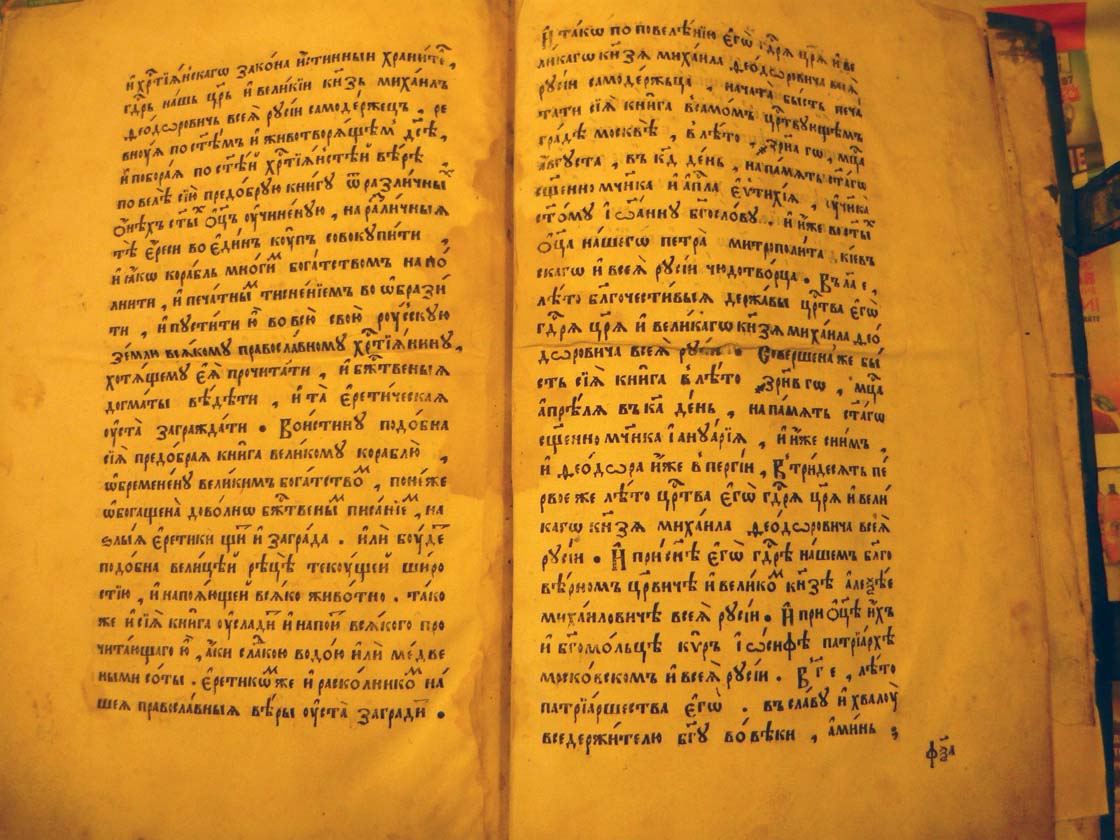 и҆ хрⷭ҇тїѧ́нскагѡ зако́на и҆́стинныи храни́теⷧ҇,
гдⷭ҇рь нашь цр҃ь и҆ вели́кїи кн҃зь миха́илъ
ѳео́дѡровичь всеѧ̀ рꙋсїи самоде́ржецъ, ре
внꙋ́ѧ по ст҃ѣ́мъ и҆ животворѧ́щемъ дс҃ѣ,
и҆ побора́ѧ по ст҃ѣ́й хрⷭ҇тїѧ́нстѣй вѣ́рѣ
повелѣ̀ сїю̀ предо́брꙋю кни́гꙋ ѿ разли́чныⷯ
о҆́нѣхъ ст҃ыⷯ ѻ҆ц҃ъ ᲂу҆чине́нꙋю, на ра́зличныѧ
тѣ̀ є҆́реси во є҆ди́нъ кꙋ́пъ совокꙋпи́ти,
и҆ ꙗ҆́кѡ кора́бль мно́гиⷨ бога́тствомъ напо́
лнити, и҆ печа́тныⷨ тисне́нїемъ воѡбрази́
ти, и҆ пꙋсти́ти ю҆̀ во всю̀ свою̀ рꙋ́сскꙋю
зе́млю всѧ́комꙋ правосла́вномꙋ хрⷭ҇тїѧни́нꙋ,
хотѧ́щемꙋ є҆ѧ̀ прочита́ти, и҆ бжⷭ҇твеныѧ
догма́ты вѣ́дѣти, и҆ та̀ є҆рети́ческаѧ
ᲂу҆ста̀ загражда́ти. Вои́стинꙋ подо́бна
сїѧ̀ предо́браѧ кни́га вели́комꙋ кораблю̀,
ѡ҆бремене́нꙋ вели́кимъ бога́тствоⷨ, поне́же
ѡ҆богаще́на дово́лнѡ бжⷭ҇твеныⷨ писа́нїеⷨ, на
ѕлы́ѧ є҆рети́ки щиⷮ и҆ загра́да. и҆лѝ бꙋ́деⷮ
подо́бна вели́цѣй рѣцѣ̀ текꙋ́щей широ
сті́ю, и҆ напоѧ́ющей всѧ́ко живо́тно. та́ко
же и҆ сїѧ̀ кни́га ᲂу҆слади́ⷮ и҆ напои́ⷮ всѧ́кого про
чита́ющаго ю҆̀, а҆́ки сла́ⷣкою водо́ю и҆лѝ ме́две
ными со́ты. є҆рети́кѡⷨ же и҆ раско́лникоⷨ на́
шеѧ правосла́вныѧ вѣ́ры ᲂу҆ста̀ загради́ⷮ.
И҆ та́кѡ по повелѣ́нїю є҆гѡ̀ гдⷭ҇рѧ цр҃ѧ̀ и҆ ве
ли́кагѡ кн҃зѧ миха́ила ѳео́дѡровича всеѧ̀
рꙋсїи самоде́ржьца, нача́та бы́сть печа́
тати сїѧ̀ кни́га в само́мъ црⷭ҇твꙋющемъ
гра́дѣ москвѣ̀, в лѣ́то, ҂зрн҃а гѡ, мцⷭ҇а
а҆́вгꙋста, въ к҃д де́нь, на па́мѧть ст҃а́гѡ
сщ҃е́нно мч҃нка и҆ а҆пⷭ҇ла є҆ѵти́хїѧ, ᲂу҆ч҃ника̀
ст҃о́мꙋ і҆ѡа́ннꙋ бг҃осло́вꙋ. и҆ и҆́же во ст҃ыⷯ
ѻ҆ц҃а̀ на́шегѡ петра̀ митрополи́та кі́евъ
скагѡ и҆ всеѧ̀ рꙋсїи чюдотво́рца. Въ л҃а е,
лѣ́то бл҃гочести́выѧ держа́вы црⷭ҇тва є҆гѡ̀
гдⷭ҇рѧ цр҃ѧ̀ и҆ вели́кагѡ кн҃зѧ миха́ила ѳео́
дѡровича всеѧ̀ рꙋсїи. Соверше́на же бы́
сть сїѧ̀ кни́га в лѣ́то ҂зрн҃в гѡ, мцⷭ҇а
а҆прѣ́лѧ въ к҃а де́нь, на па́мѧть ст҃а́гѡ
сщ҃е́нно мч҃нка і҆аннꙋа́рїѧ, и҆ и҆́же с ни́мъ
и҆ ѳео́дѡра и҆́же в пергі́и, В три́десѧть пе́
рвое же лѣ́то црⷭ҇тва є҆гѡ̀ гдⷭ҇рѧ цр҃ѧ̀ и҆ вели́
кагѡ кн҃зѧ миха́ила ѳео́дѡровича всеѧ̀
рꙋсїи. И҆ при сн҃ѣ є҆гѡ̀ гдⷭ҇рѣ нашемъ бл҃го
вѣ́рномъ цр҃вичѣ и҆ вели́коⷨ кн҃зѣ а҆леѯѣ́е
миха́иловичѣ всеѧ̀ рꙋсїи. И҆ при ѻ҆ц҃ѣ̀ и҆́хъ
и҆ бг҃омо́льцѣ кѵ́ръ і҆ѡ́сифѣ патрїа́рхѣ
моско́вскомъ и҆ всеѧ̀ рꙋсїи. В г҃ е, лѣ́то
патрїа́ршества є҆гѡ̀. въ сла́вꙋ и҆ хвалꙋ̀
вседержи́телю бг҃ꙋ во вѣ́ки, а҆ми́нь
фѯ҃а